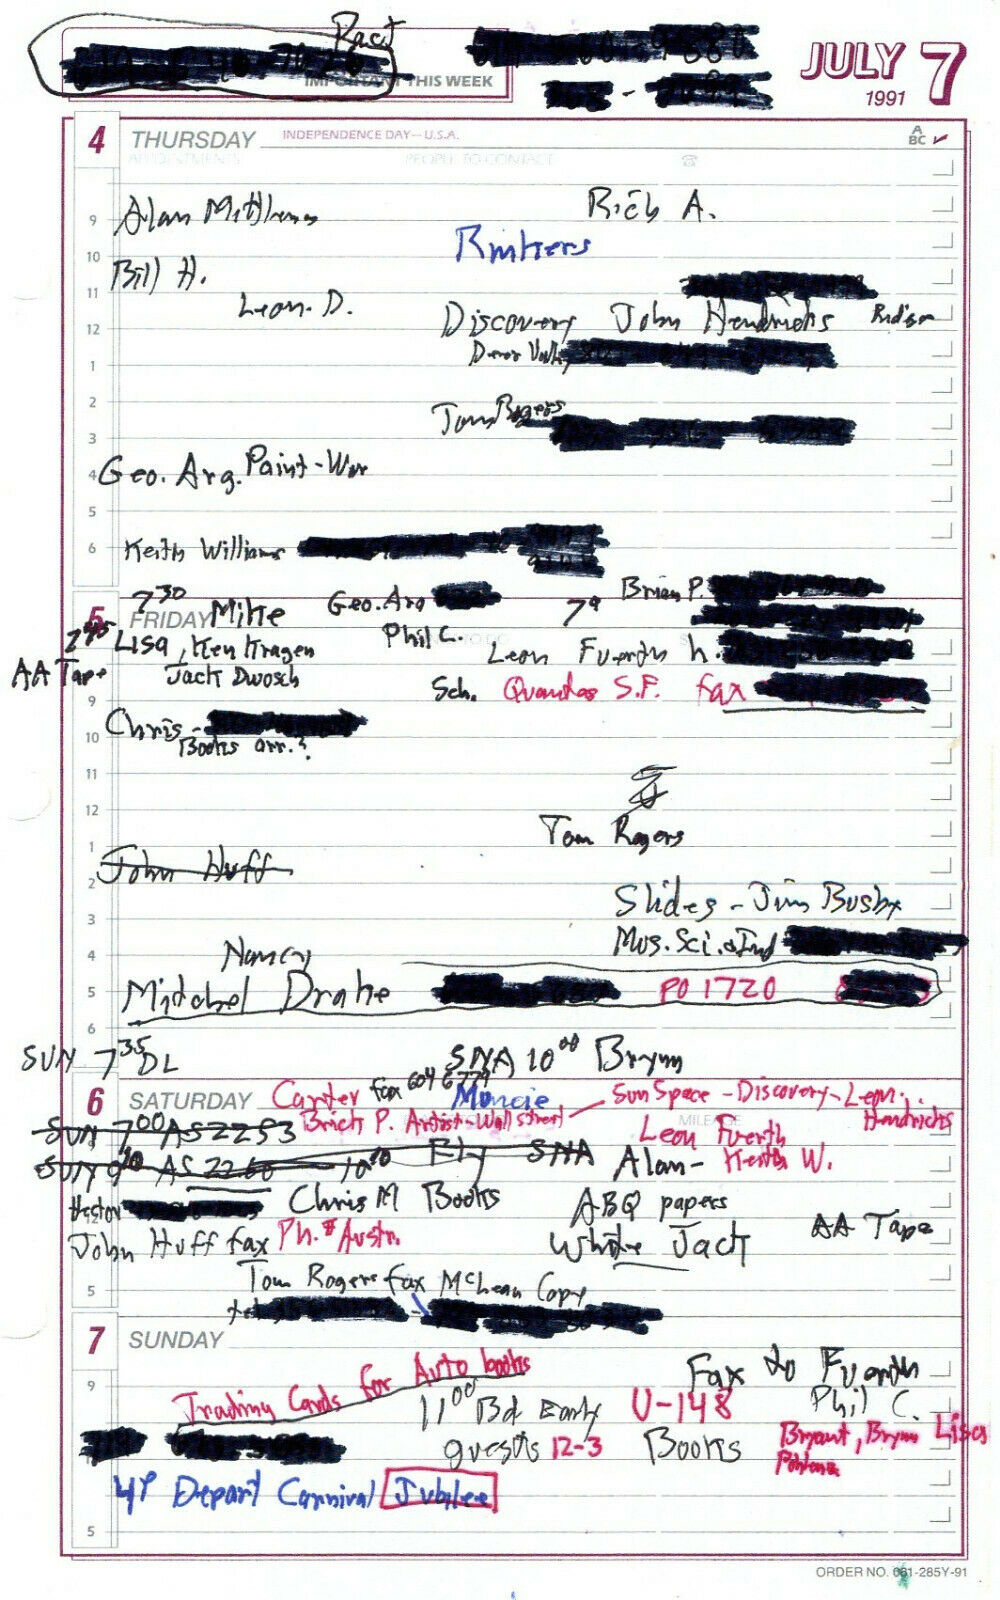 Pact
IMPORTANT THIS WEEK
JULY 7
1991
4 THURSDAY INDEPENDENCE DAY—U.S.A.
A
BC
APPOINTMENTS PEOPLE TO CONTACT
Rich A.
9 Alan
Rinkers
10
Bill H.
11
Leon. D.
Discovery John Hendricks
12
1
2
Tom Rogers
3
4 Geo. Arg. Paint-War
5
6 Keith Williams
7 30 Mike Geo. Arg Brian P.
5 FRIDAY Phil C. TO DO
7 45 Lisa, Ken Kragen Leon Fuerth h.
AA Tape Jack Dwosch
Sch. Quandas S.F. fax
9
Chris -
10 Books arr.?
11
12
Tom Rogers
1
John Huff
2
Slides - Jim Busby
3
Mus. Sci. & Ind
4 Nancy
5 Michael Drake PO 1720
6
SUN 7 35 DL SNA 10 00 Brynn
fax 604 6779
6 SATURDAY Carter Muncie Sun Space - Discovery - Leon. Hendricks
MILEAGE
SUN 7 00 AS 2253 Brick P. Artist-Wall street
Leon Fuerth
SUN 9 10 AS 2260 10 00 Fly SNA Alan- Keith W.
Hector Chris M Books ABQ papers
12
John Huff fax Ph. # Austn. White Jack AA Tape
Tom Rogers fax McLean Copy
5 tel
7 SUNDAY
Fax to Fuerth
9 Trading Cards for Auto books
11 00 Bd Early U-148 Phil C.
guests 12-3 Books Bryant, Brynn Lisa
4P Depart Carnival Jubilee
5
ORDER NO. 061-285Y-91